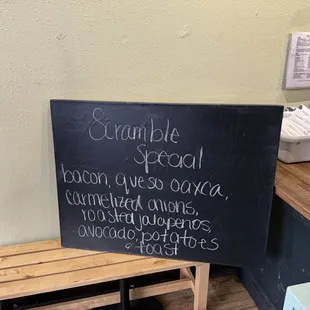 Scramble
Special
bacon, queso oaxca,
carmelized onions,
roasted jalapeños,
avocado, potatoes
& toast